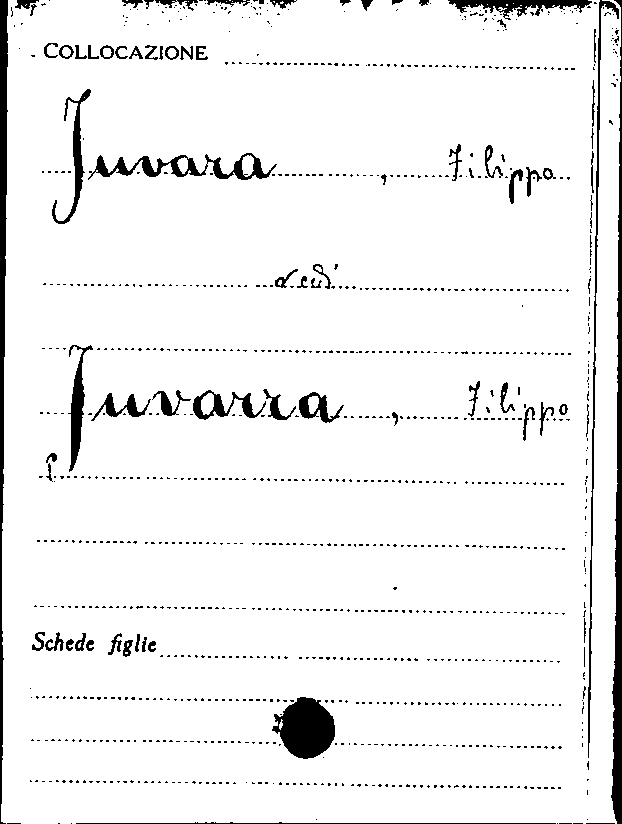 COLLOCAZIONE
Juvara, Filippo
vedi
Juvarra, Filippo
Schede figlie